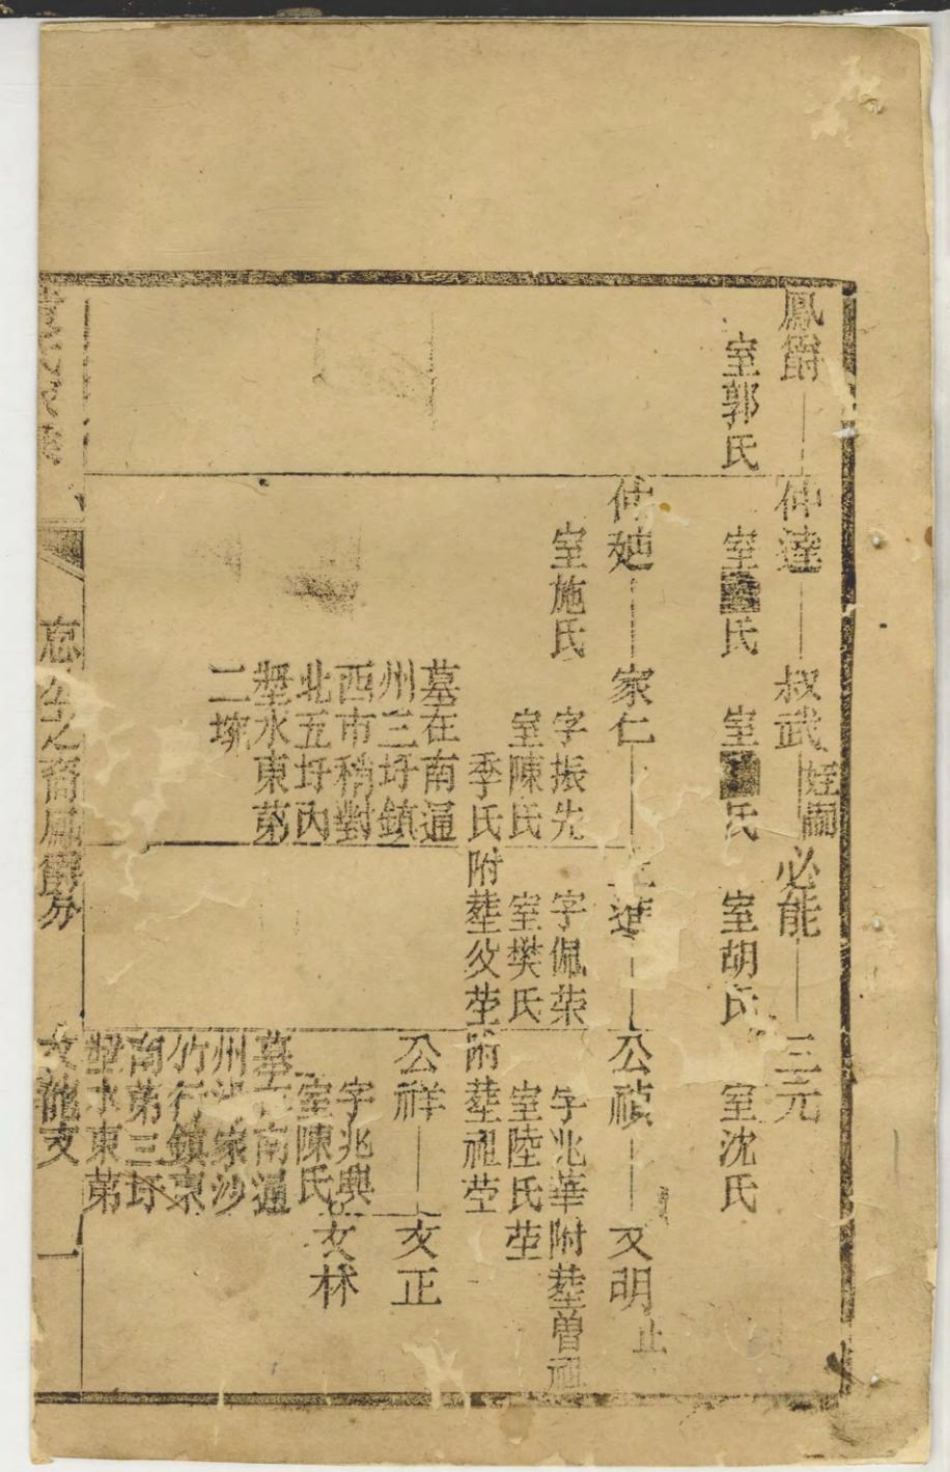 鳳爵
室郭氏
仲達
室 氏
仲廸
室施氏
叔武 姪嗣
室 氏
家仁
字振先
室陳氏
季氏
墓在南通
州三圩鎮
西市稍對
北五圩內
壆水東第
二坑
必能
室胡氏
進
字佩荣
室樊氏
附塟父茔
三元
室沈氏
公禎
字兆華
室陸氏
附塟祖茔
公祥
字兆興
室陳氏
墓在南通
州 家沙
竹行鎮東
南第三圩
壆水東第
文明 止
附塟曽祖
茔
文正
文林
志公之裔鳳爵分
文龍支
一